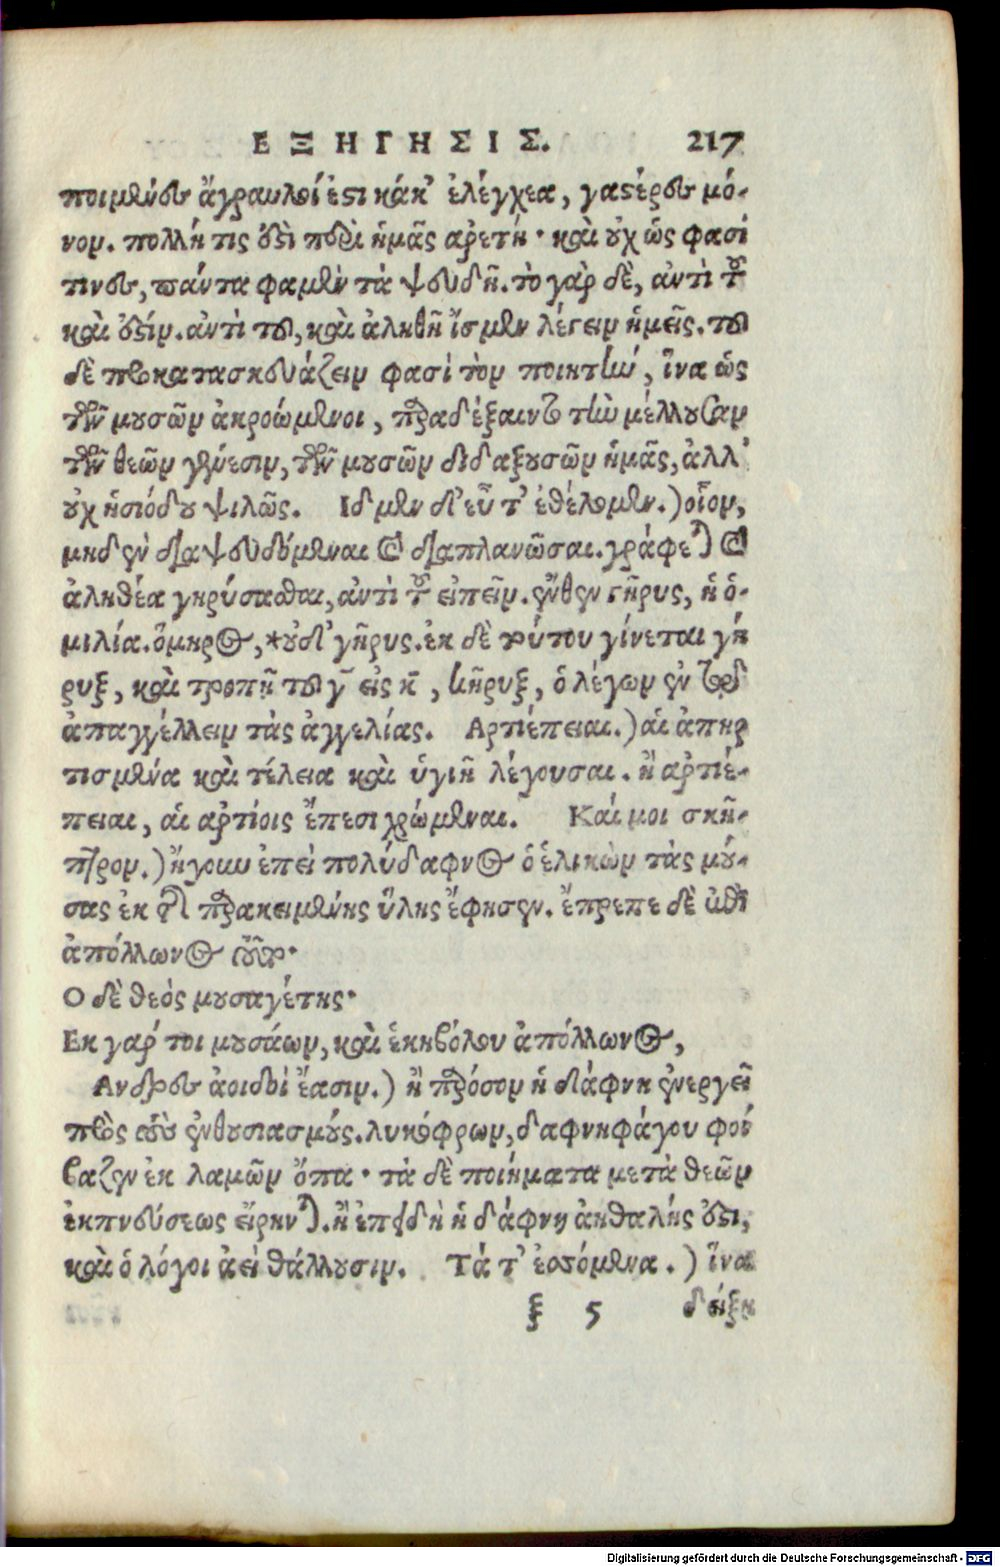 ΕΞΗΓΗΣΙΣ. 217
ποιμένες ἄγραυλοί ἐστι κάκ' ἐλέγχεα, γαστέρες μό-
νον. πολλή τις ὅτι περὶ ἡμᾶς ἀρετή· καὶ οὐχ ὥς φασί
τινες, πάντα φαμὲν τὰ ψευδῆ. τὸ γὰρ δὲ, ἀντὶ τοῦ
καὶ ὅστίν. ἀντὶ τοῦ, καὶ ἀληθῆ ἴσμεν λέγειν ἡμεῖς. τοῦτο
δὲ προκατασκευάζειν φασὶ τὸν ποιητὴν, ἵνα ὡς
τῶν μουσῶν ἀκροώμενοι, παραδέξαιντο τὴν μέλλουσαν
τῶν θεῶν γένεσιν, τῶν μουσῶν διδαξουσῶν ἡμᾶς, ἀλλ'
οὐχ ἡσιόδου ψιλῶς. Ιδμεν δ' εὖτ' ἐθέλομεν.) οἷον,
μηδὲν διαψευδόμεναι καὶ διαπλανῶσαι. γράφεται καὶ
ἀληθέα γηρύσασθαι, ἀντὶ τοῦ εἰπεῖν. ἔνθεν γῆρυς, ἡ ὁ-
μιλία. ὅμηρος, *οὐδ' γῆρυς. ἐκ δὲ τούτου γίνεται γή
ρυξ, καὶ τροπῇ τοῦ γ εἰς κ, κῆρυξ, ὁ λέγων ἐν τῷ
ἀπαγγέλλειν τὰς ἀγγελίας. Αρτιέπειαι.) αἱ ἀπηρ
τισμένα καὶ τέλεια καὶ ὑγιῆ λέγουσαι. ἢ ἀρτιέ-
πειαι, αἱ ἀρτίοις ἔπεσι χρώμεναι. Καί μοι σκῆ-
πτρον.) ἤγουν ἐπεὶ πολύδαφνος ὁ ἑλικὼν τὰς μού-
σας ἐκ τῆς παρακειμένης ὕλης ἔφησεν. ἔπρεπε δὲ
ἀπόλλωνος
Ο δὲ θεὸς μουσαγέτης·
Εκ γάρ τοι μουσάων, καὶ ἑκηβόλου ἀπόλλωνος,
Ανδρες ἀοιδοὶ ἔασιν.) ἢ παρόσον ἡ δάφνη ἐνεργεῖ
πρὸς τοὺς ἐνθουσιασμούς. λυκόφρων, δαφνηφάγου φοί
βαζεν ἐκ λαιμῶν ὄπα· τὰ δὲ ποιήματα μετὰ θεῶν
ἐκπνεύσεως εἴρηνται. ἢ ἐπειδὴ ἡ δάφνη ἀηθαλής ὅστι,
καὶ ὁ λόγοι ἀεὶ θάλλουσιν. Τά τ' ἐσσόμενα.) ἵνα
ξ 5 δείξῃ